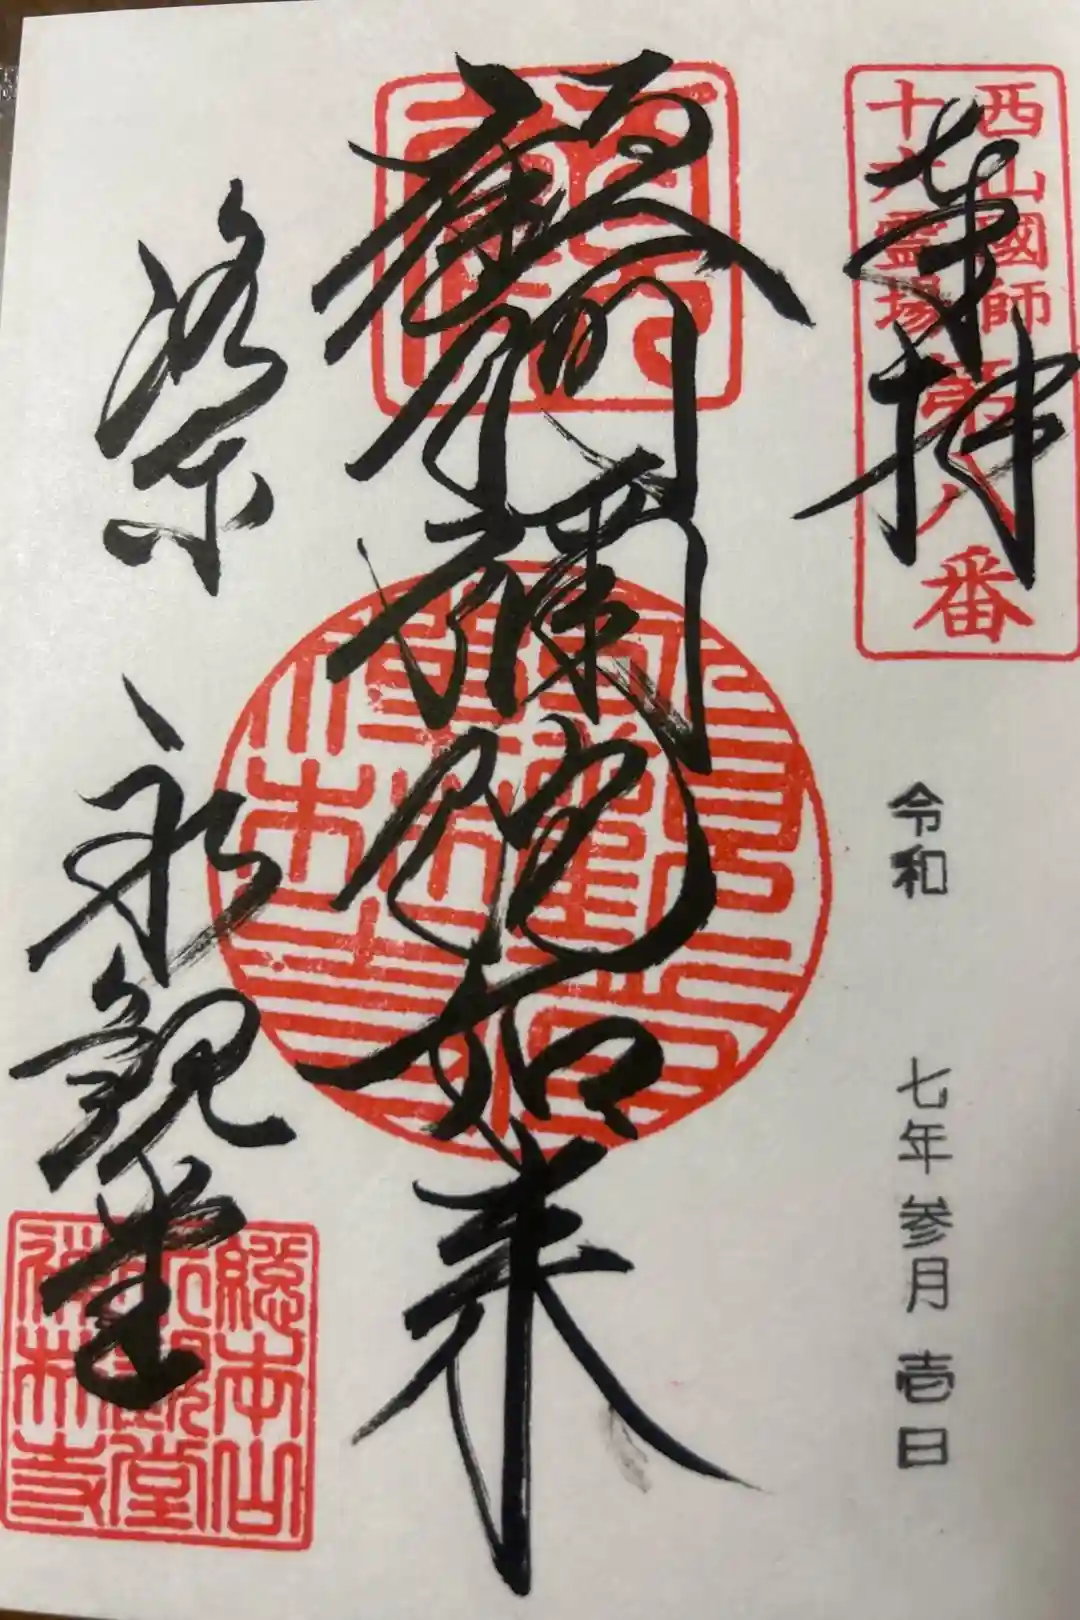 奉拝
西山國師
十六霊場
第八番
令和 七年参月壱日
顧阿彌陀如来
洛東 永観堂
總本山
永観堂
禅林寺